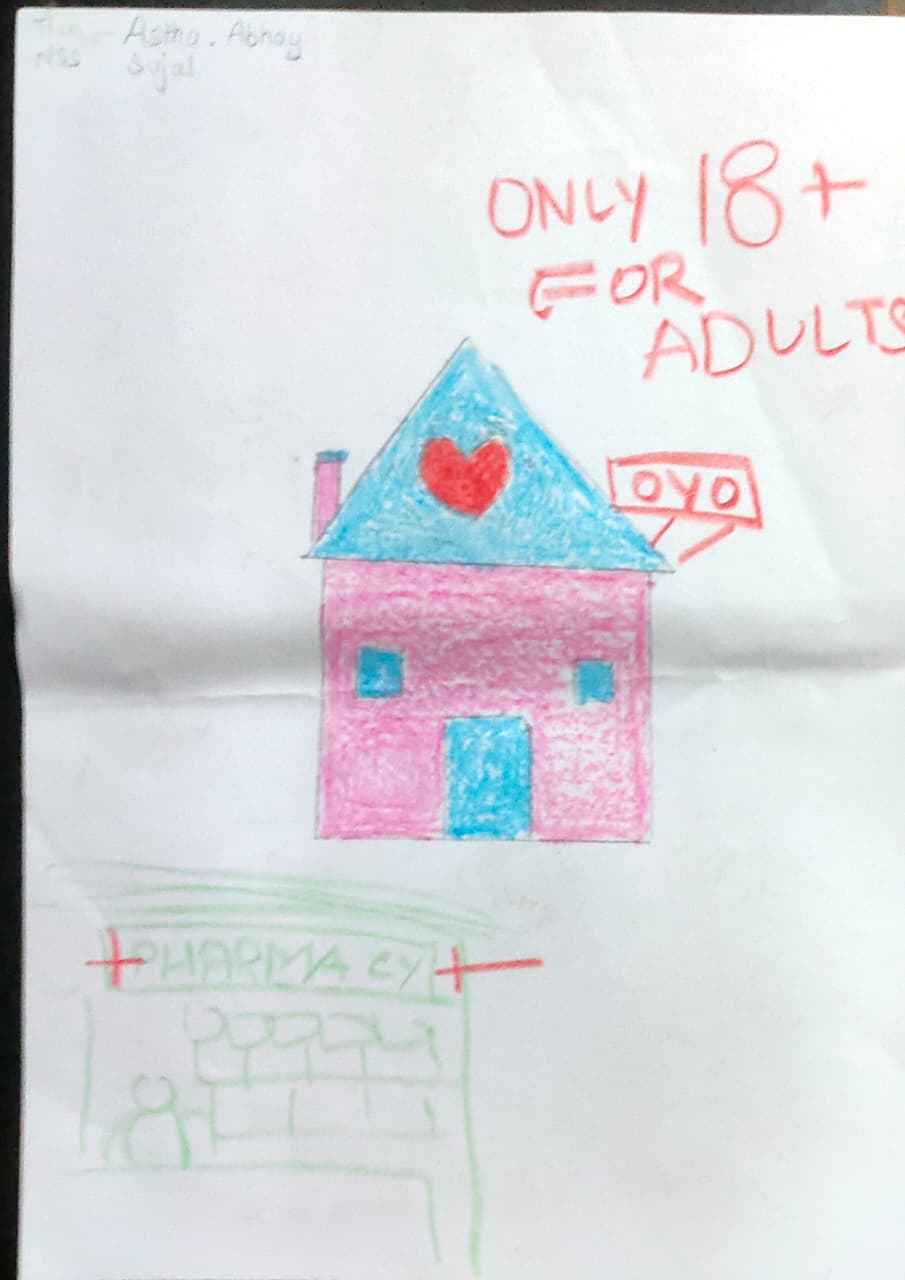 Astha. Abhay
NSS Sujal
ONLY 18+
FOR
ADULTS
OYO
PHARMACY